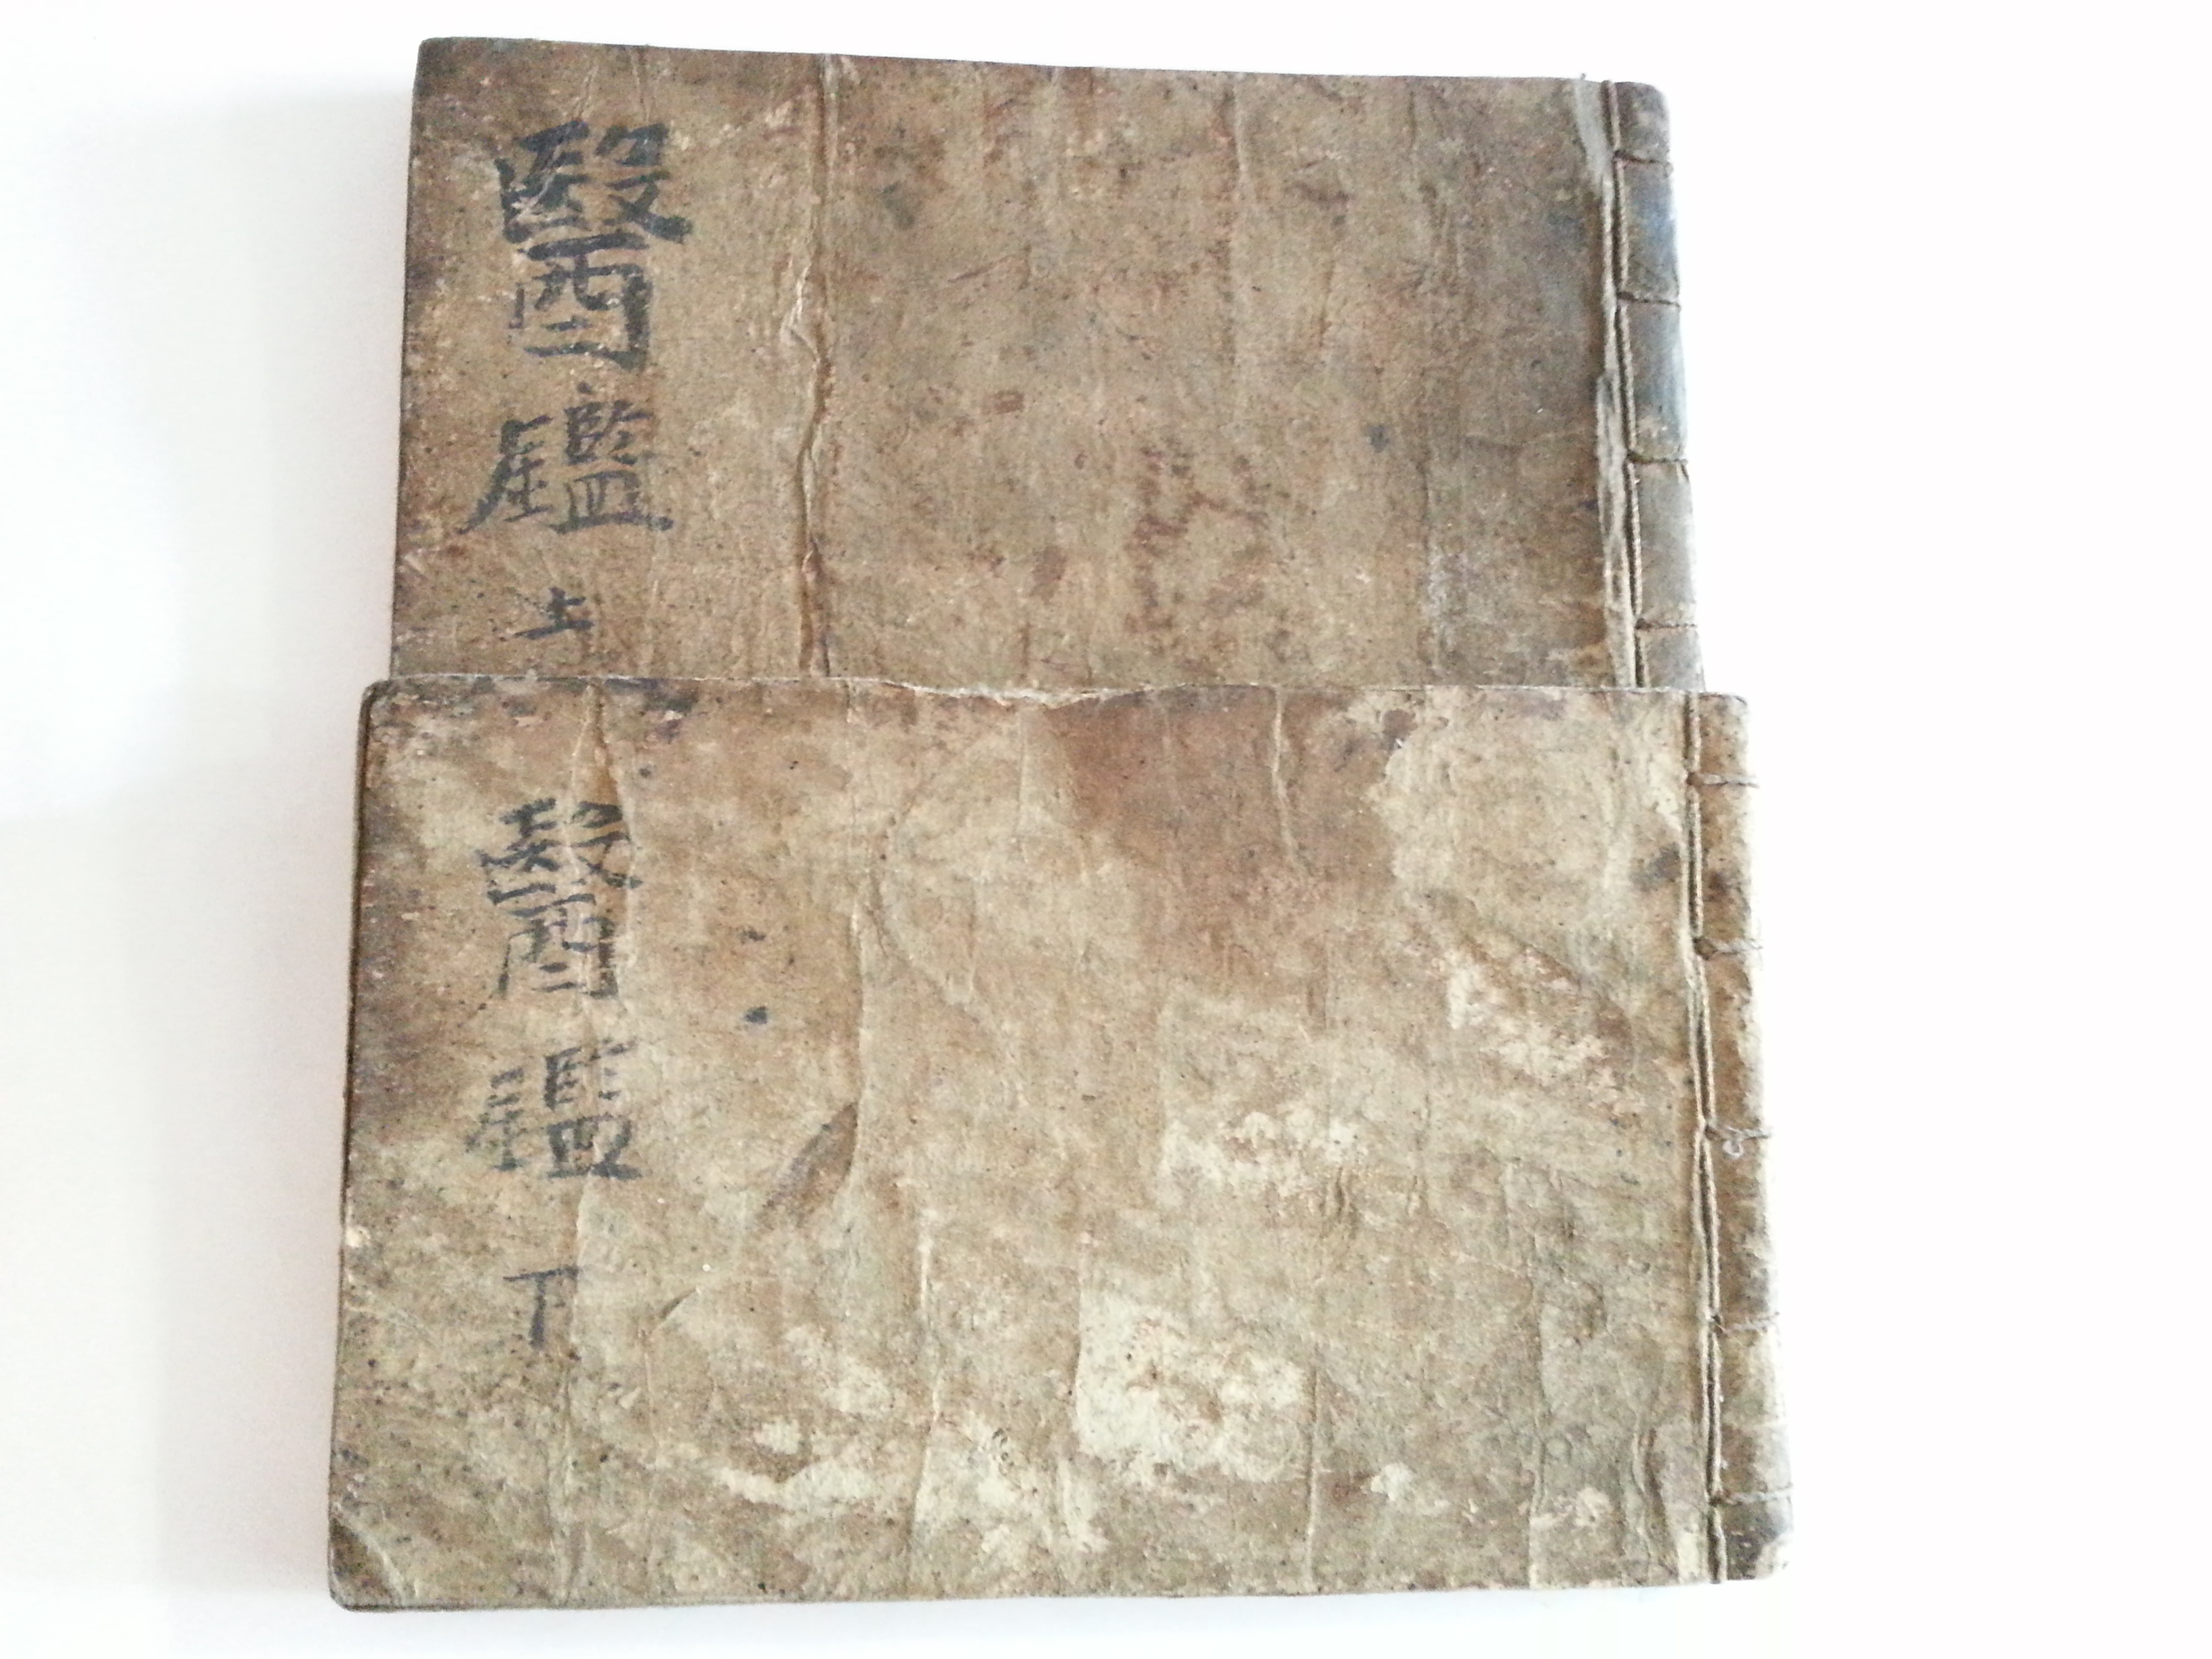 醫鑑 上
醫鑑 下